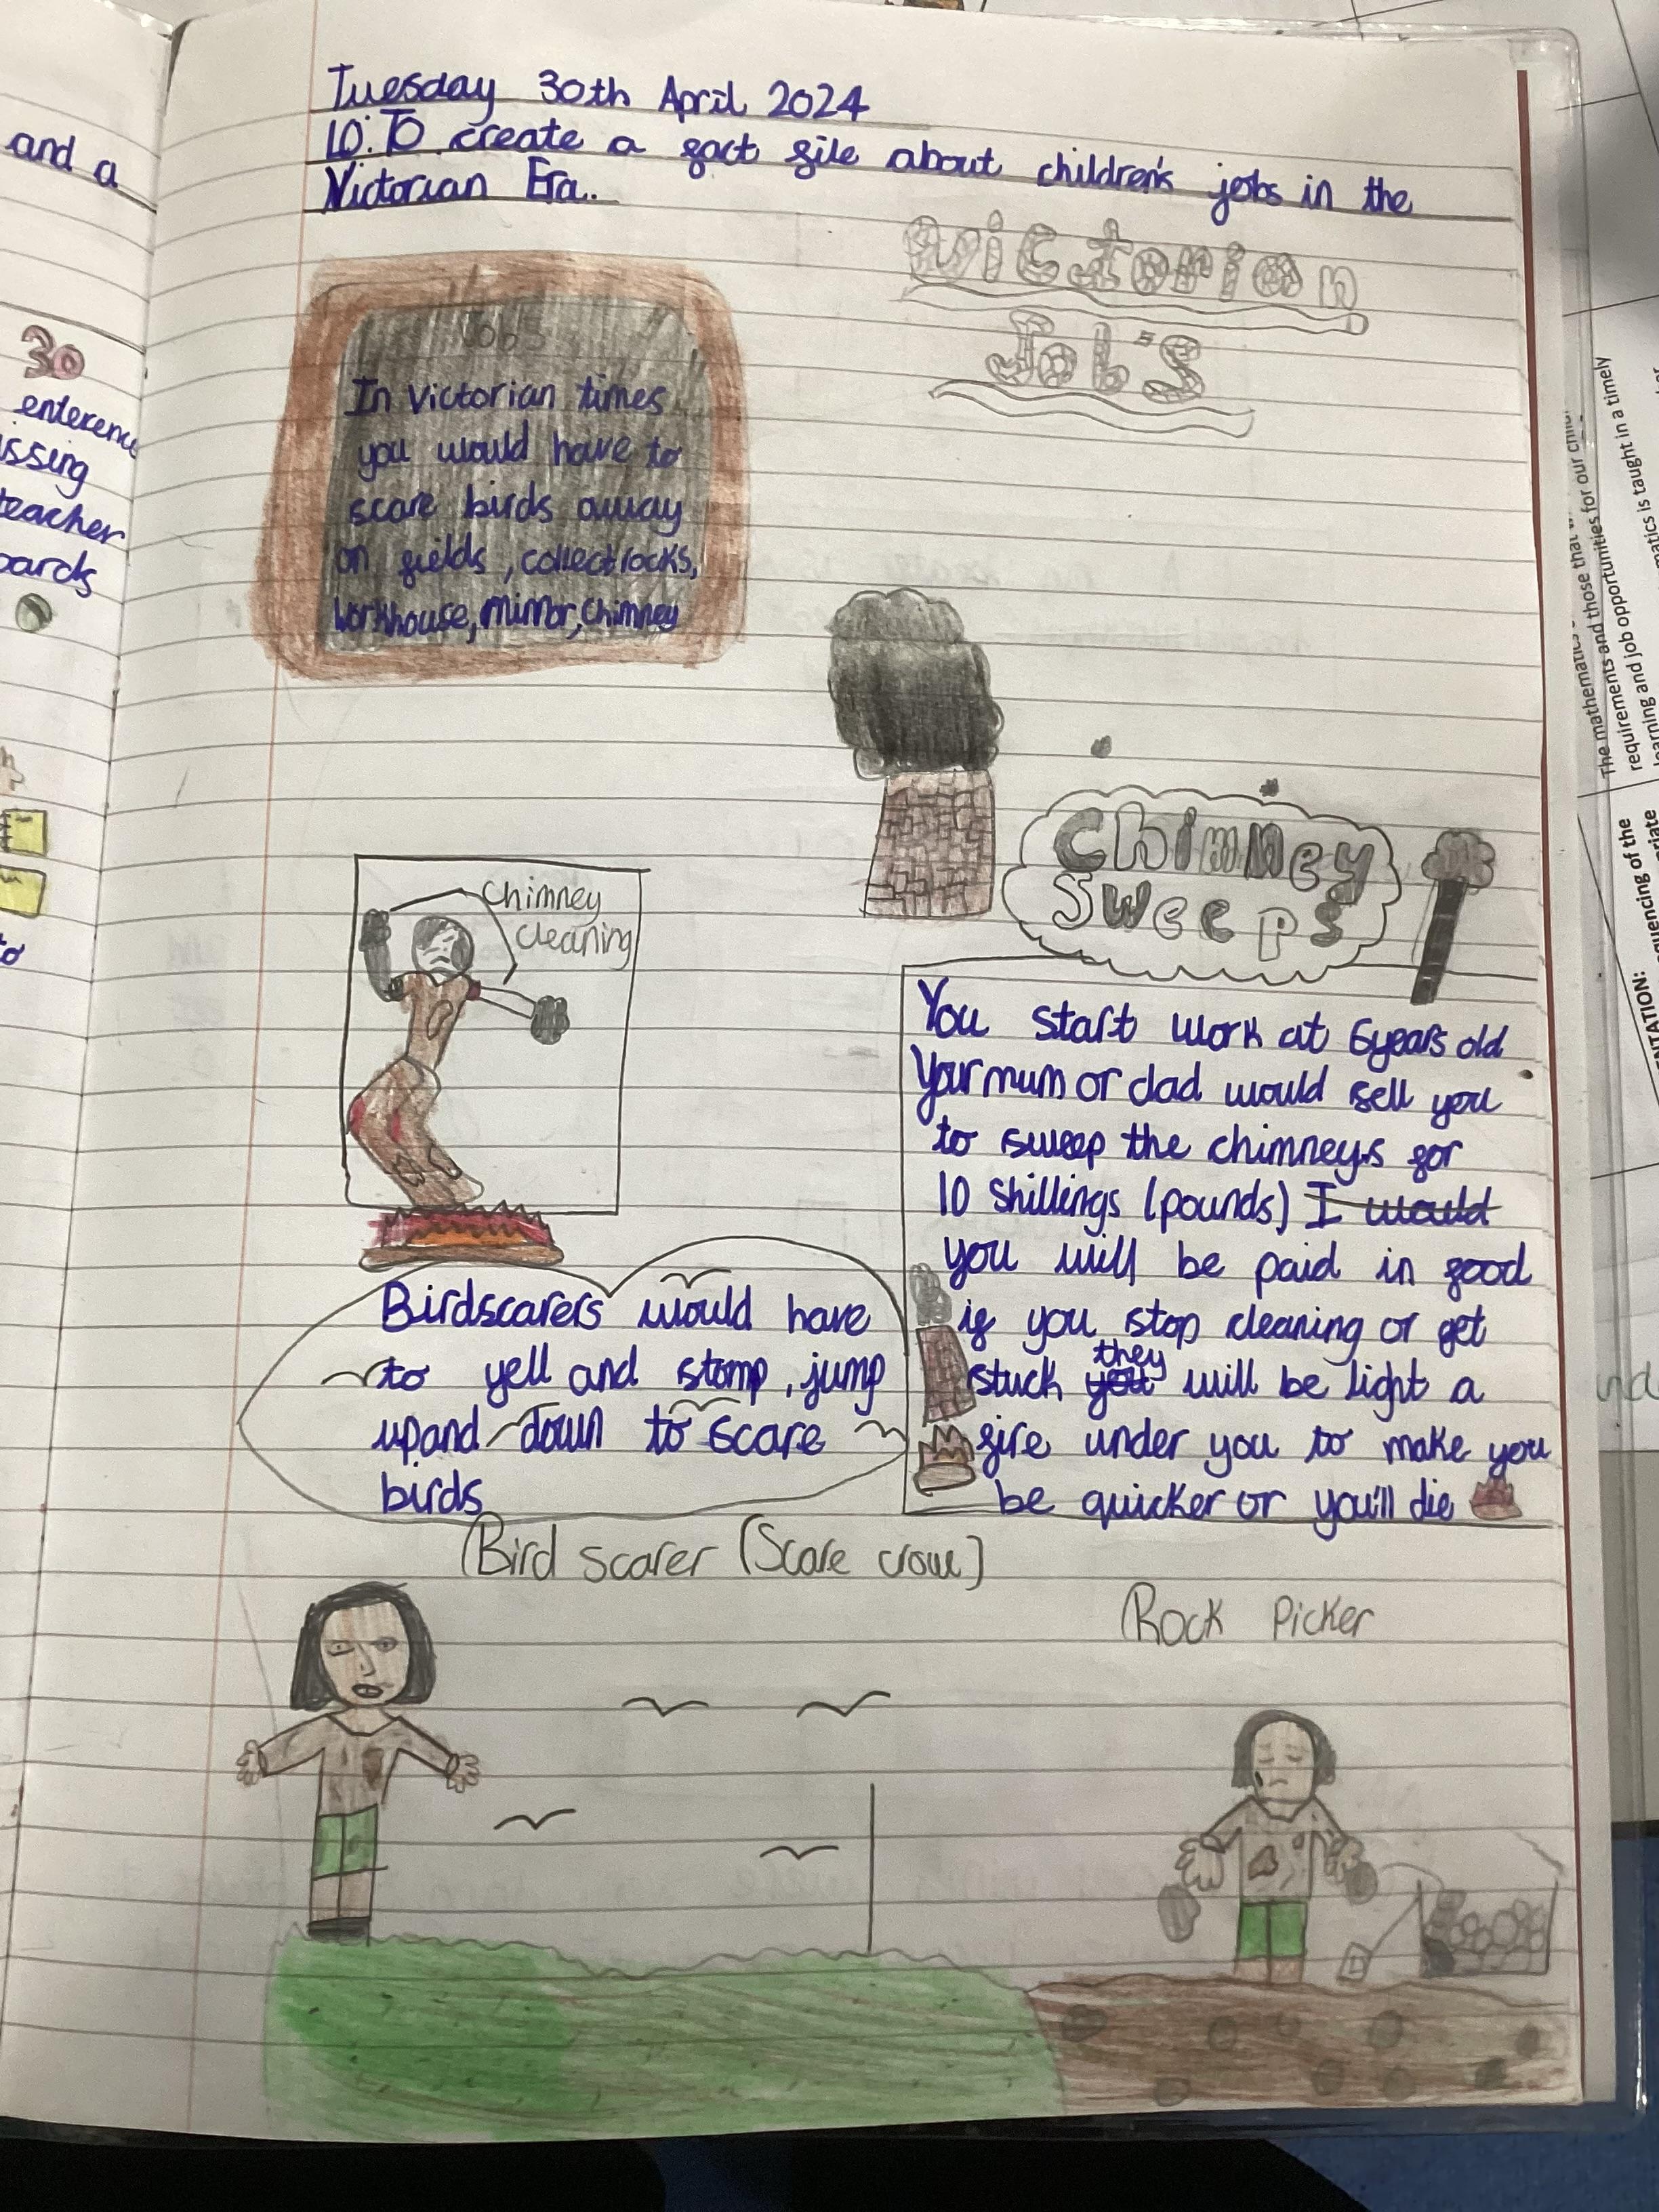 Tuesday 30th April 2024
LO: To create a fact file about children's jobs in the
Victorian Era.
Victorian
Job's
Jobs
In Victorian times
you would have to
scare birds away
on fields, collect rocks,
workhouse, mirror, chimney
Chimney
Sweeps
Chimney
cleaning
You start work at 6 years old
Your mum or dad would sell you
to sweep the chimneys for
10 shillings (pounds) I would
you will be paid in food
if you stop cleaning or get
stuck you they will be light a
fire under you to make you
be quicker or you'll die
Birdscarers would have
to yell and stomp, jump
up and down to scare
birds
Bird scarer (Scare crow)
Rock Picker
and a
30
enterenc
issing
teacher
oards
to
The mathematics
requirements and those that
and job opportunities for our
learning
matics is taught in a timely
quencing of the
NTATION: